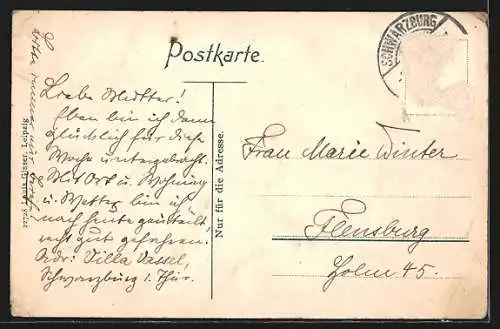 Postkarte.
SCHWARZBURG
Liebe Mutter!
Eben bin ich dann
glücklich für diese
Woche untergebracht.
Mit Ort u. Wohnung
u. Wetter bin ich
noch heute
recht gut gefahren.
Adr: Villa Vassel,
Schwarzburg i. Thür.
immer nur
Nur für die Adresse.
Frau Marie Winter
Flensburg
Holm 45.